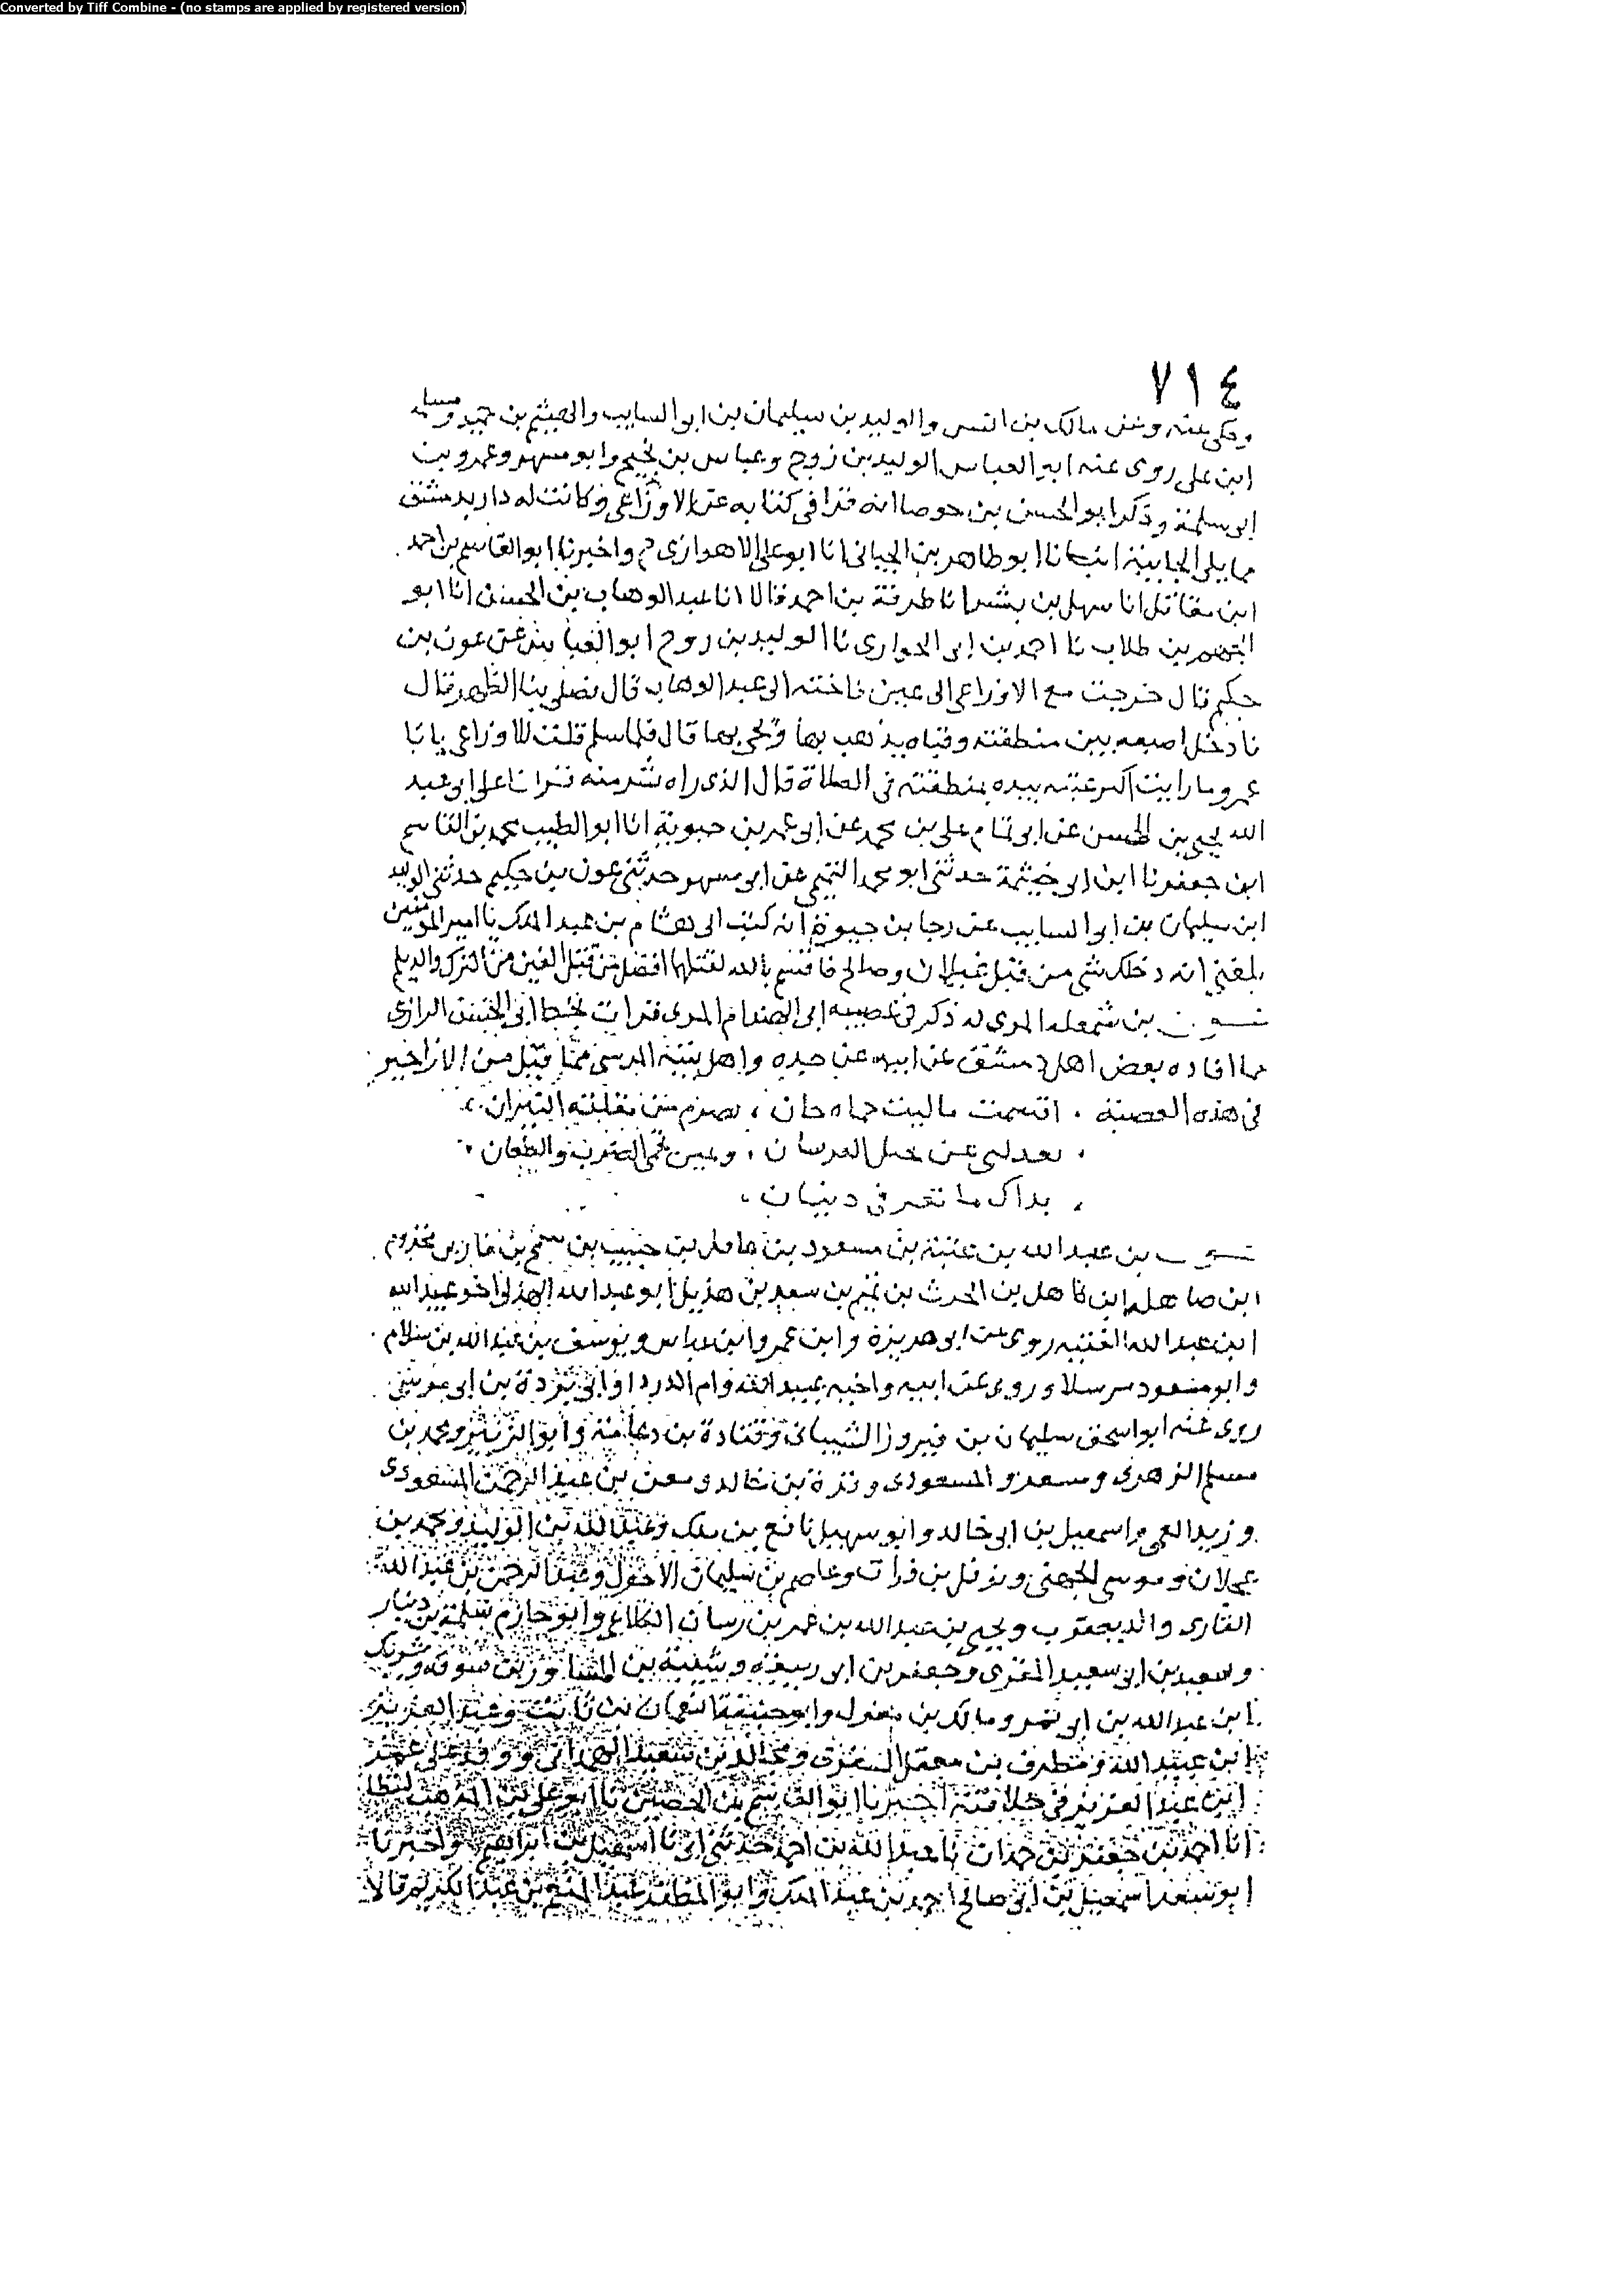 Converted by Tiff Combine - (no stamps are applied by registered version)
٧١٤
وحكى عنه وعن مالك بن انس والوليد بن سليمان بن ابو السايب والهيثم بن حميد ومسلمه
ابن على روى عنه ابو العباس الوليد بن روح وعباس بن نجيح وابو مسهر وعمرو بن
ابى سلمة وذكر ابو الحسن بن جوصا انه قرا فى كتابه عن الاوزاعى وكانت له دار بدمشق
مما يلى الجابية انبانا ابو طاهر بن الجياني انا ابو على الاهوازى م واخبرنا ابو القاسم بن احمد
ابن مقاتل انا سهل بن بشر انا طرفة بن احمد قالا انا عبد الوهاب بن الحسن انا ابو
الجهم بن طلاب نا احمد بن ابى الحوارى نا الوليد بن روح ابو العباس عن عون بن
حكيم قال خرجت مع الاوزاعى الى عين فاخته الى عبد الوهاب قال فصلى بنا الظهر قال
فادخل اصبعه بين منطقته وقباه يذهب بها ويجى بها قال فلما سلم قلت للاوزاعى يا با
عمرو ما رايت اكبر عبثه بيده بمنطقته فى الصلاة قال الذى راه شر منه قرانا على ابى عبد
الله يحيى بن الحسن عن ابى تمام على بن محمد عن ابى عمر بن حيوية انا ابو الطيب محمد بن القاسم
ابن جعفر نا ابن ابى خيثمة حدثنى ابو محمد التميمى عن ابى مسهر حدثنى عون بن حكيم حدثنى الوليد
ابن سليمان بن ابو السايب عن رجا بن حيوة انه كتب الى هشام بن عبد الملك يا امير المومنين
بلغني انه دخلك شى من قتل غيلان وصالح فاقسم بالله لقتلهما افضل من قتل الفين من الترك والديلم
عون بن شمعله المرى له ذكر فى عصبيه ابى الهندام المرى قرات بخط ابى الحسين الرازى
مما افاده بعض اهل دمشق عن ابيه عن جده واهل بيته المرسى مما قيل من الاراجيز
فى هذه العصبة . اقسمت ما ليث حماه حان ،
بداك ما
عون بن عبد الله بن عتبة بن مسعود بن غافل بن حبيب بن شمخ بن فار بن مخزوم
ابن صاهله ابن كاهل بن الحرث بن تميم بن سعد بن هذيل ابو عبد الله الهذلى اخو عبيد الله
ابن عبد الله الفقيه روى عن ابو هريرة وابن عمر وابن عباس ويوسف بن عبد الله بن سلام
وابو مسعود مرسلا وروى عن ابيه واخيه عبيد الله وام الدردا وابى بردة بن ابى موسى
روى عنه ابو اسحق سليمان بن فيروز الشيبانى وقتادة بن دعامة وابو الزبير ومحمد بن
مسلم الزهرى ومسعر والمسعودى وقرة بن خالد ومعن بن عبد الرحمن المسعودى
وزيد العمى واسمعيل بن ابى خالد وابو سهيل نافع بن ملك وعبد الله بن الوليد ومحمد بن
عجلان وموسى الجهنى ونوفل بن فرات وعاصم بن سليمان الاحول وعبد الرحمن بن عبد الله
القارى والد يعقوب ويحيى بن عبد الله بن عمر بن رسان الكلاعى وابو حازم سلمة بن دينار
وسعيد بن ابى سعيد المقبرى وجعفر بن ابى ربيعة وشيبة بن سوقه وشريك
ابن عبد الله بن ابى نمر ومالك بن مغول وابو حنيفة النعمان بن ثابت وعبد العزيز
ابن عبيد الله ومطرف بن معقل ومجالد بن سعيد الهمدانى ووفد على عمر
ابن عبد العزيز فى خلافته اخبرنا ابو القاسم بن الحصين نا ابو على بن المذهب لفظا
انا احمد بن جعفر بن حمدان نا عبد الله بن احمد حدثنى ابى نا اسمعيل بن ابراهيم واخبرنا
ابو سعد اسمعيل بن ابى صالح احمد بن عبد الملك وابو المظفر عبد المنعم بن عبد الكريم قالا